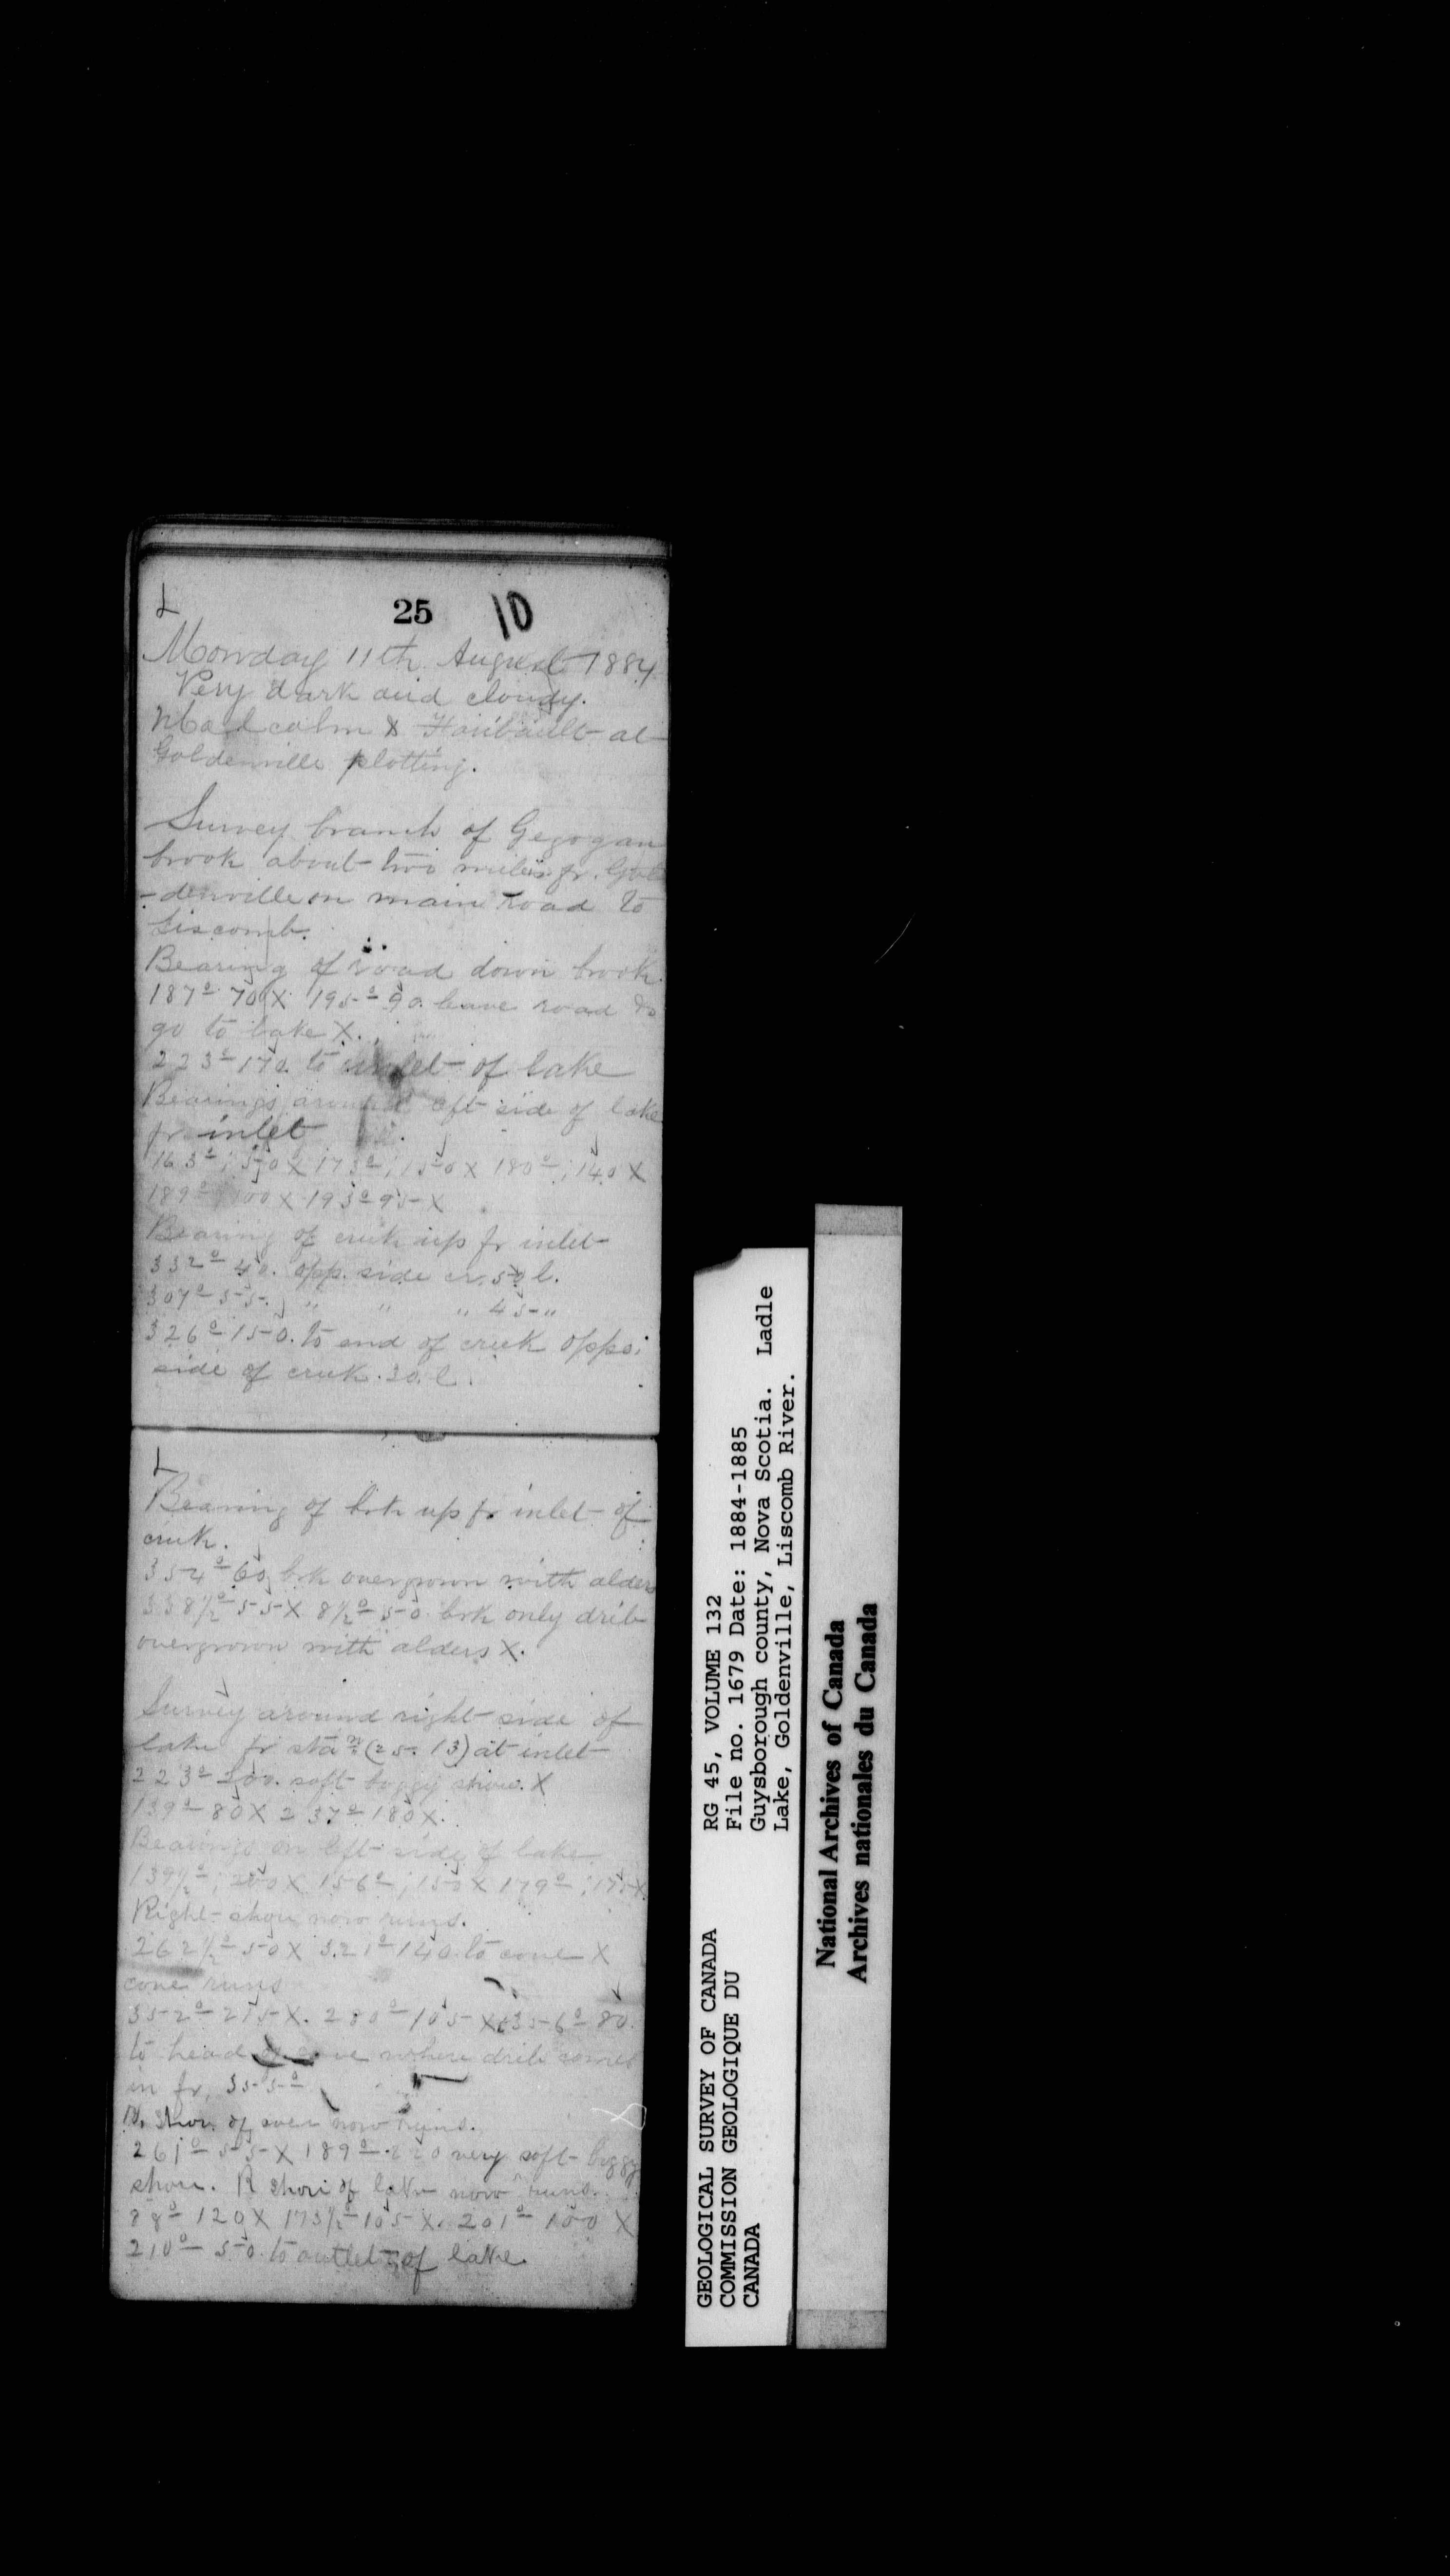 L
25 10
Monday 11th August 1884
Very dark and cloudy.
Malcolm & Faribault at
Goldenville plotting.
Survey branch of Gegogan
brook about two miles fr. Gol
-denville on main road to
Liscomb.
Bearing of road down brook.
187° 70 X 195° 90. leave road to
go to lake X.
223° 170. to inlet of lake
Bearings around left side of lake
fr inlet
163°; 50 X 173°; 150 X 180°; 140 X
189° 100 X 193° 95 X
Bearing of creek up fr inlet
332° 40. opp. side cr. 50 l.
307° 55. " " " 45 "
326° 150. to end of creek oppo:
side of creek. 30. l.
L
Bearing of brk up fr inlet of
creek.
354° 60 brk overgrown with alders
338½° 55 X 8½° 50. brk only drib
overgrown with alders X.
Survey around right side of
lake fr stan (25. 13) at inlet
223° 200. soft boggy shore. X
139° 80 X 237° 180 X.
Bearings on left side of lake.
139½°; 200 X 156°; 150 X 179°; 175 X
Right shore now runs.
262½° 50 X 321° 140. to cove X
cove runs
352° 215 X. 280° 105 X 356° 80.
to head of cove where drib comes
in fr. 355°
R. shore of cove now runs.
261° 55 X 189° 220 very soft boggy
shore. R shore of lake now runs.
88° 120 X 173½° 105 X. 201° 100 X
210° 50. to outlet of lake.
GEOLOGICAL SURVEY OF CANADA
COMMISSION GEOLOGIQUE DU
CANADA
RG 45, VOLUME 132
File no. 1679 Date: 1884-1885
Guysborough county, Nova Scotia. Ladle
Lake, Goldenville, Liscomb River.
National Archives of Canada
Archives nationales du Canada